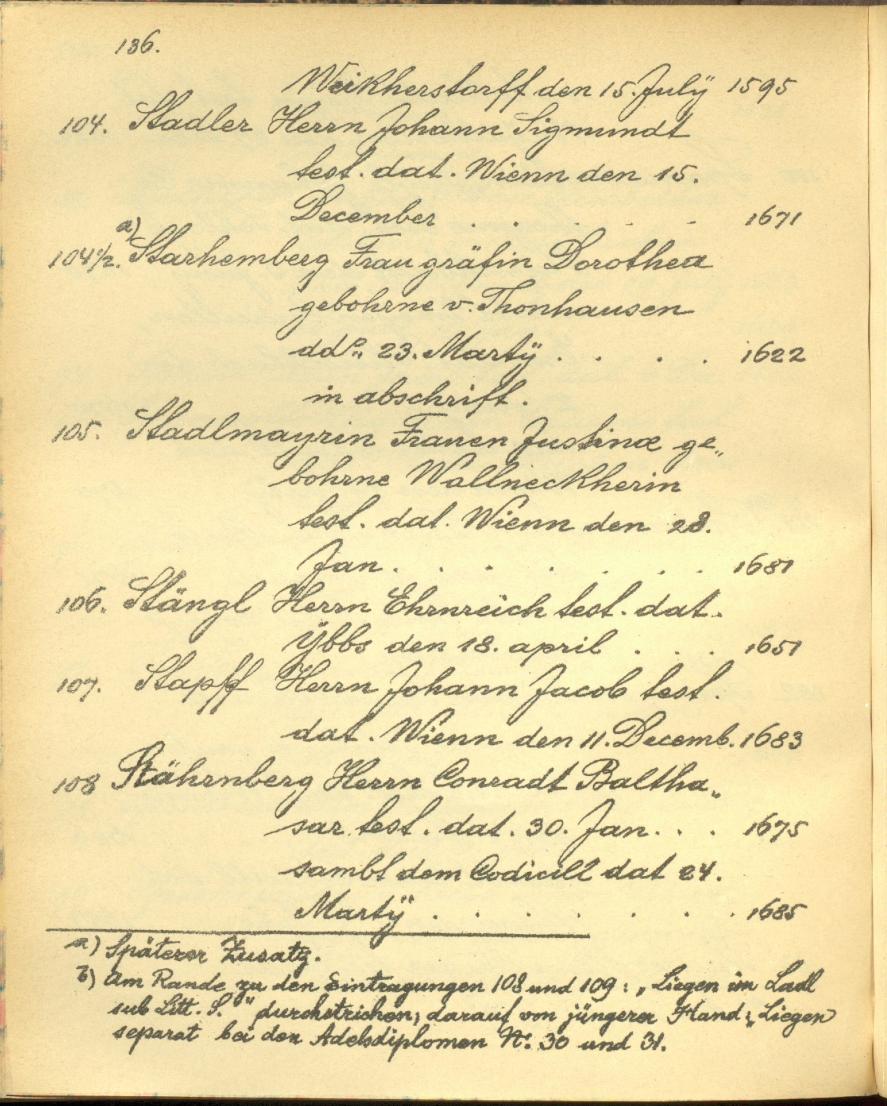 136.
Weikherstorff den 15. Julÿ 1595
104. Stadler Herrn Johann Sigmundt
test. dat. Wienn den 15.
December . . . . . 1671
a)
104 1/2. Starhemberg Frau gräfin Dorothea
gebohrne v. Thonhausen
ddo. 23. Martÿ . . . . 1622
in abschrift.
105. Stadlmayrin Frauen Justinæ ge„
bohrne Wallneckherin
test. dat. Wienn den 28.
Jan. . . . . . . . 1681
106. Stängl Herrn Ehrnreich test. dat.
Ÿbbs den 18. april . . . 1651
107. Stapff Herrn Johann Jacob test.
dat. Wienn den 11. Decemb. 1683
108 Stährnberg Herrn Conradt Baltha„
sar test. dat. 30. Jan. . . 1675
sambt dem Codicill dat 24.
Martÿ . . . . . . . 1685
a) Späterer Zusatz.
b) Am Rande zu den Eintragungen 108 und 109: „Liegen im Ladl
sub Litt. S." durchstrichen, darauf von jüngerer Hand: „Liegen
separat bei den Adelsdiplomen No. 30 und 31.